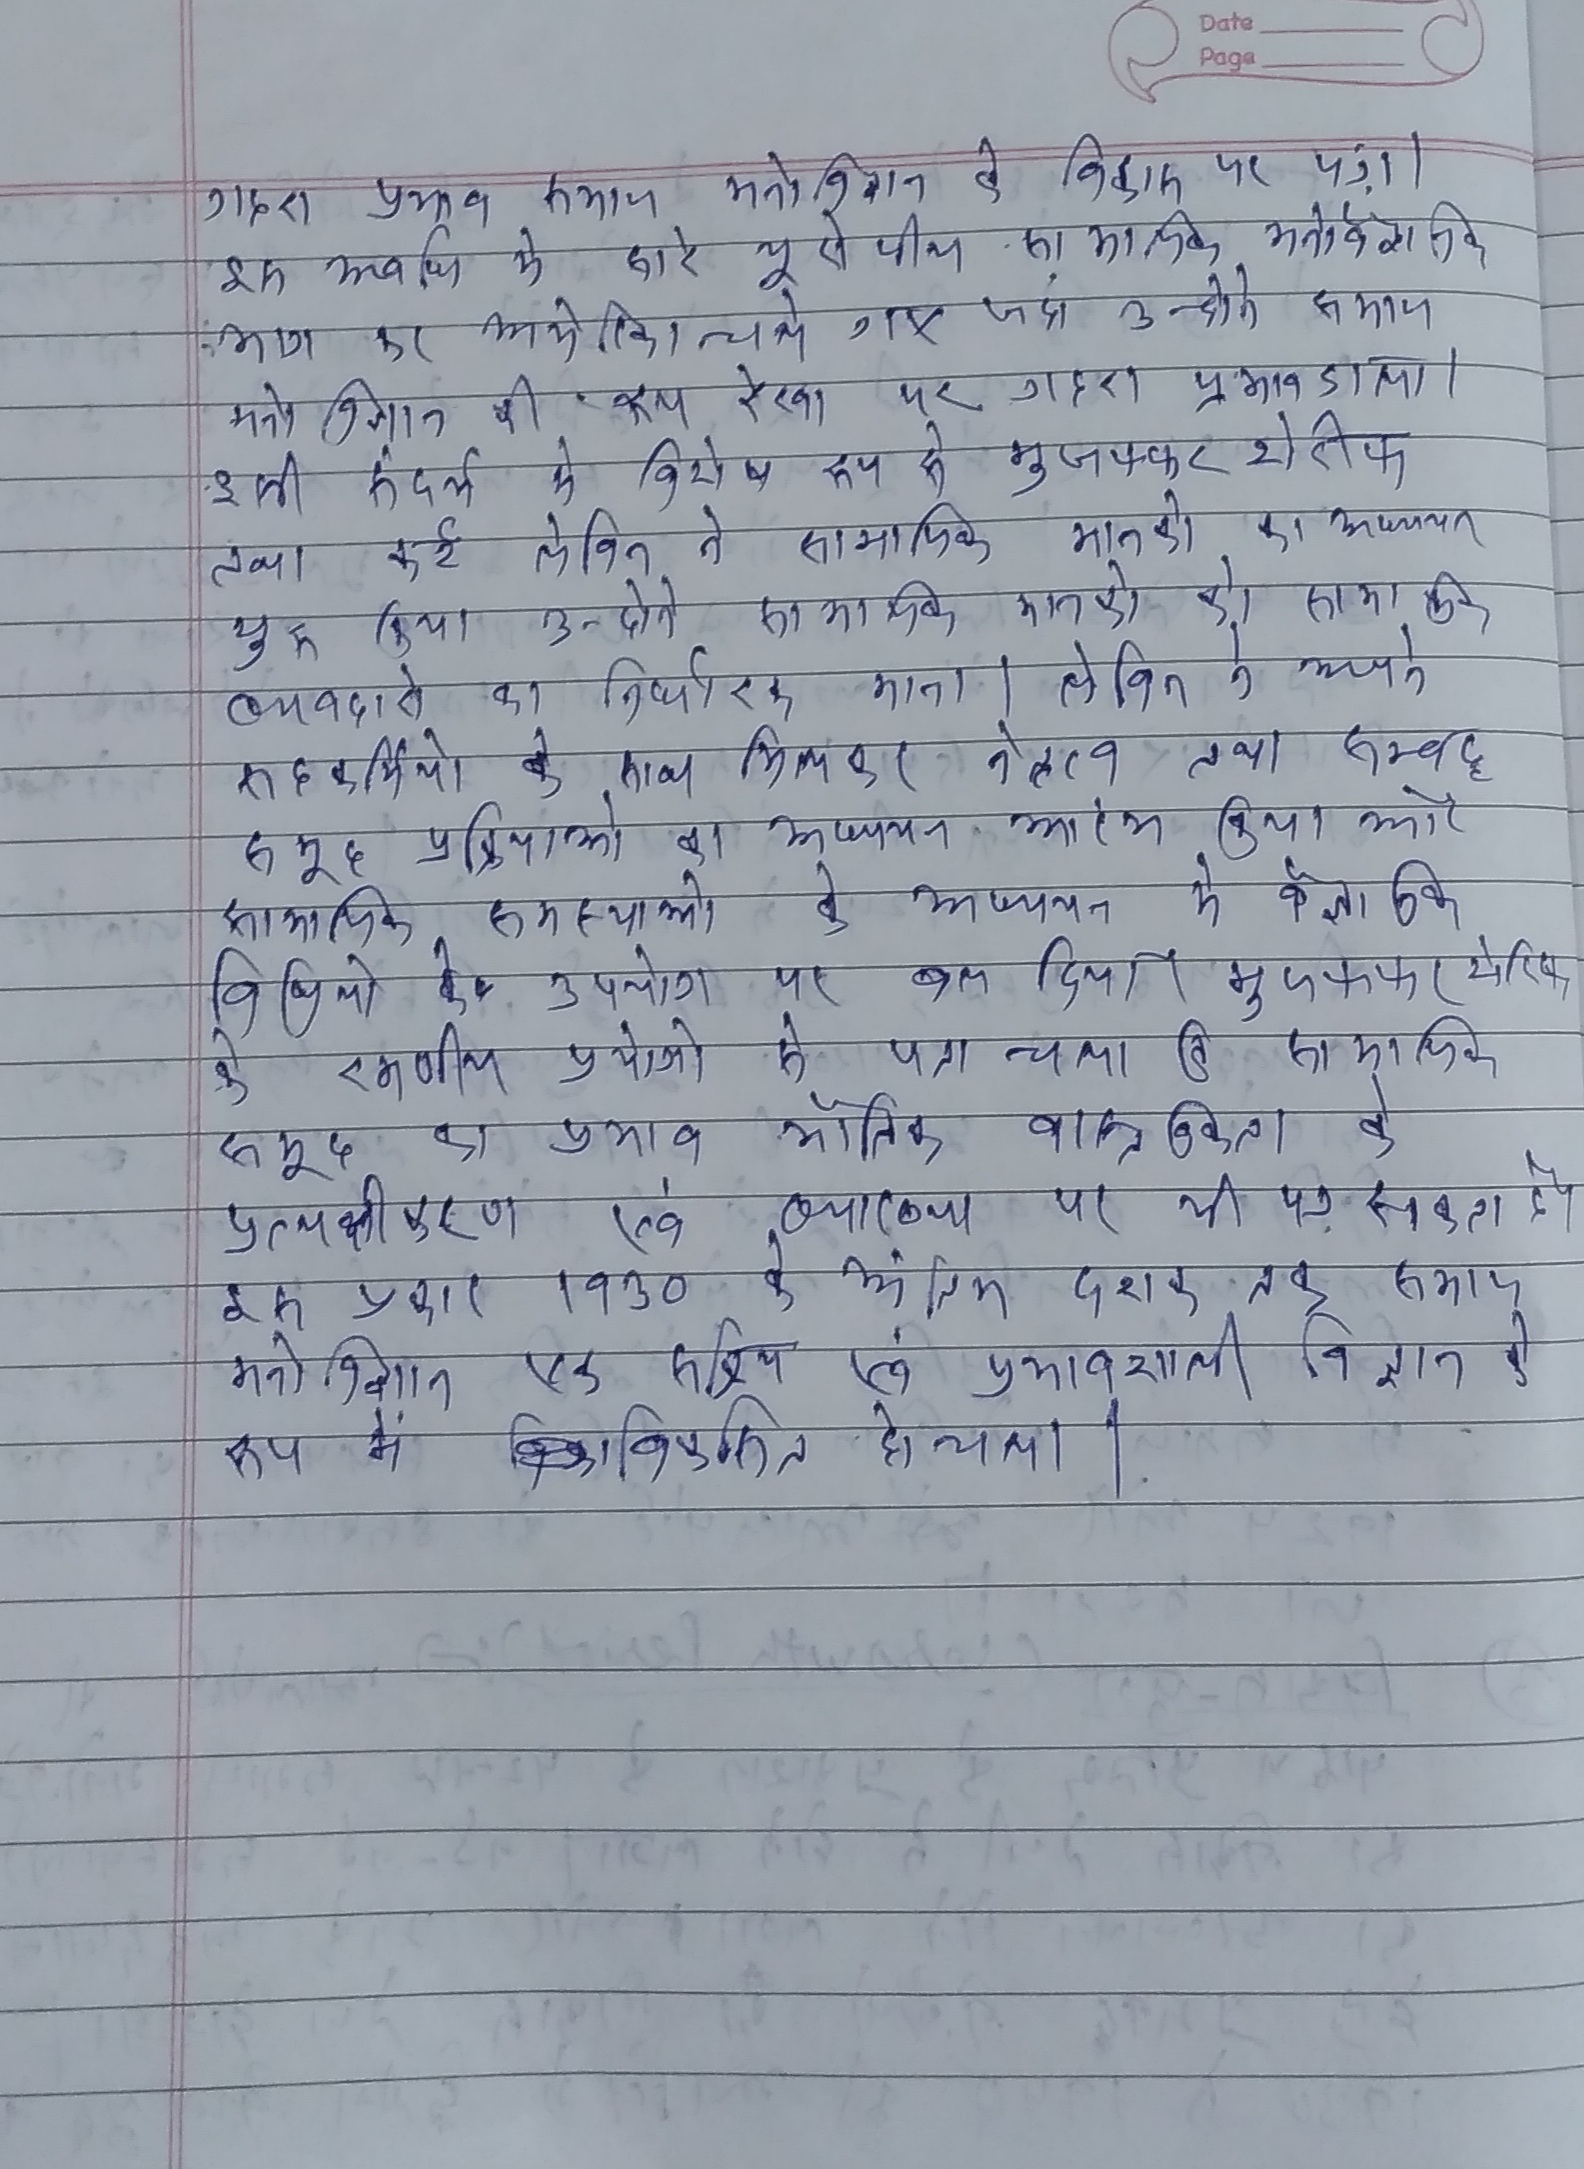 Date
Page
गहरा प्रभाव समाज मनोविज्ञान के विकास पर पड़ा।
इस अवधि मे सारे यूरोपीय सामाजिक मनोवैज्ञानिक
भाग कर अमेरिका चले गए जहां उन्होने समाज
मनोविज्ञान की रूप रेखा पर गहरा प्रभाव डाला।
इसी संदर्भ मे विशेष रूप से मुजफ्फर शेरीफ
तथा कर्ट लेविन ने सामाजिक मानको का अध्ययन
शुरू किया उन्होने सामाजिक मानको को सामाजिक
व्यवहारो का निर्धारक माना। लेविन ने अपने
सहकर्मियो के साथ मिलकर नेतृत्व तथा सम्बद्ध
समूह प्रक्रियाओ का अध्ययन आरंभ किया और
सामाजिक समस्याओ के अध्ययन मे वैज्ञानिक
विधियो के उपयोग पर बल दिया। मुजफ्फर शेरिफ
के रमणीय प्रयोगो से पता चला कि सामाजिक
समूह का प्रभाव भौतिक वास्तविकता के
प्रत्यक्षीकरण एवं व्याख्या पर भी पड़ सकता है
इस प्रकार 1930 के अंतिम दशक तक समाज
मनोविज्ञान एक सक्रिय एवं प्रभावशाली विज्ञान के
रूप में विकसित हो चला।